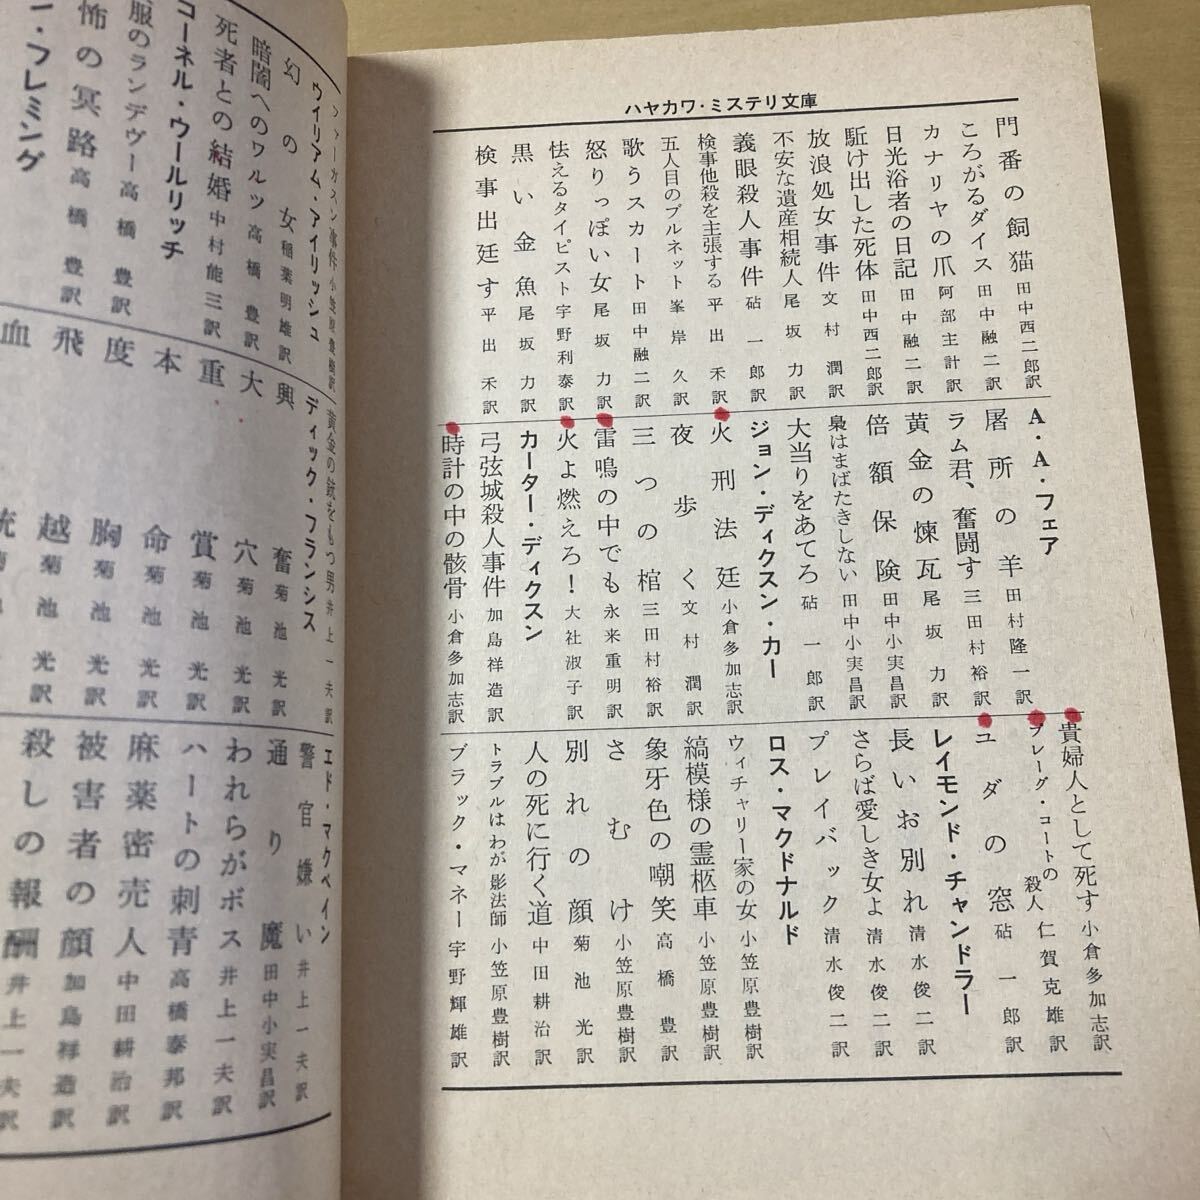 ハヤカワ・ミステリ文庫
門番の飼猫 田中西二郎訳
ころがるダイス 田中融二訳
カナリヤの爪 阿部主計訳
日光浴者の日記 田中融二訳
駈け出した死体 田中西二郎訳
放浪処女事件 文村潤訳
不安な遺産相続人 尾坂力訳
義眼殺人事件 砧一郎訳
検事他殺を主張する 平出禾訳
五人目のブルネット 峯岸久訳
歌うスカート 田中融二訳
怒りっぽい女 尾坂力訳
怯えるタイピスト 宇野利泰訳
黒い金魚 尾坂力訳
検事出廷す 平出禾訳
A・A・フェア
屠所の羊 田村隆一訳
ラム君、奮闘す 三田村裕訳
黄金の煉瓦 尾坂力訳
倍額保険 田中小実昌訳
梟はまばたきしない 田中小実昌訳
大当りをあてろ 砧一郎訳
ジョン・ディクスン・カー
火刑法廷 小倉多加志訳
夜歩く 文村潤訳
三つの棺 三田村裕訳
雷鳴の中でも 永来重明訳
火よ燃えろ! 大社淑子訳
カーター・ディクスン
弓弦城殺人事件 加島祥造訳
時計の中の骸骨 小倉多加志訳
貴婦人として死す 小倉多加志訳
プレーグ・コートの殺人 仁賀克雄訳
ユダの窓 砧一郎訳
レイモンド・チャンドラー
長いお別れ 清水俊二訳
さらば愛しき女よ 清水俊二訳
プレイバック 清水俊二訳
ロス・マクドナルド
ウィチャリー家の女 小笠原豊樹訳
縞模様の霊柩車 小笠原豊樹訳
象牙色の嘲笑 高橋豊訳
さむけ 小笠原豊樹訳
別れの顔 菊池光訳
人の死に行く道 中田耕治訳
トラブルはわが影法師 小笠原豊樹訳
ブラック・マネー 宇野輝雄訳
ファーガスン事件 小笠原豊樹訳
ウイリアム・アイリッシュ
幻の女 稲葉明雄訳
暗闇へのワルツ 高橋豊訳
死者との結婚 中村能三訳
コーネル・ウールリッチ
服のランデヴー 高橋豊訳
怖の冥路 高橋豊訳
ー・フレミング
黄金の銃をもつ男 井上一夫訳
ディック・フランシス
興奮 菊池光訳
大穴 菊池光訳
重賞 菊池光訳
本命 菊池光訳
度胸 菊池光訳
飛越 菊池光訳
血統
エド・マクベイン
警官嫌い 井上一夫訳
通り魔 田中小実昌訳
われらがボス 井上一夫訳
ハートの刺青 高橋泰邦訳
麻薬密売人 中田耕治訳
被害者の顔 加島祥造訳
殺しの報酬 井上一夫訳